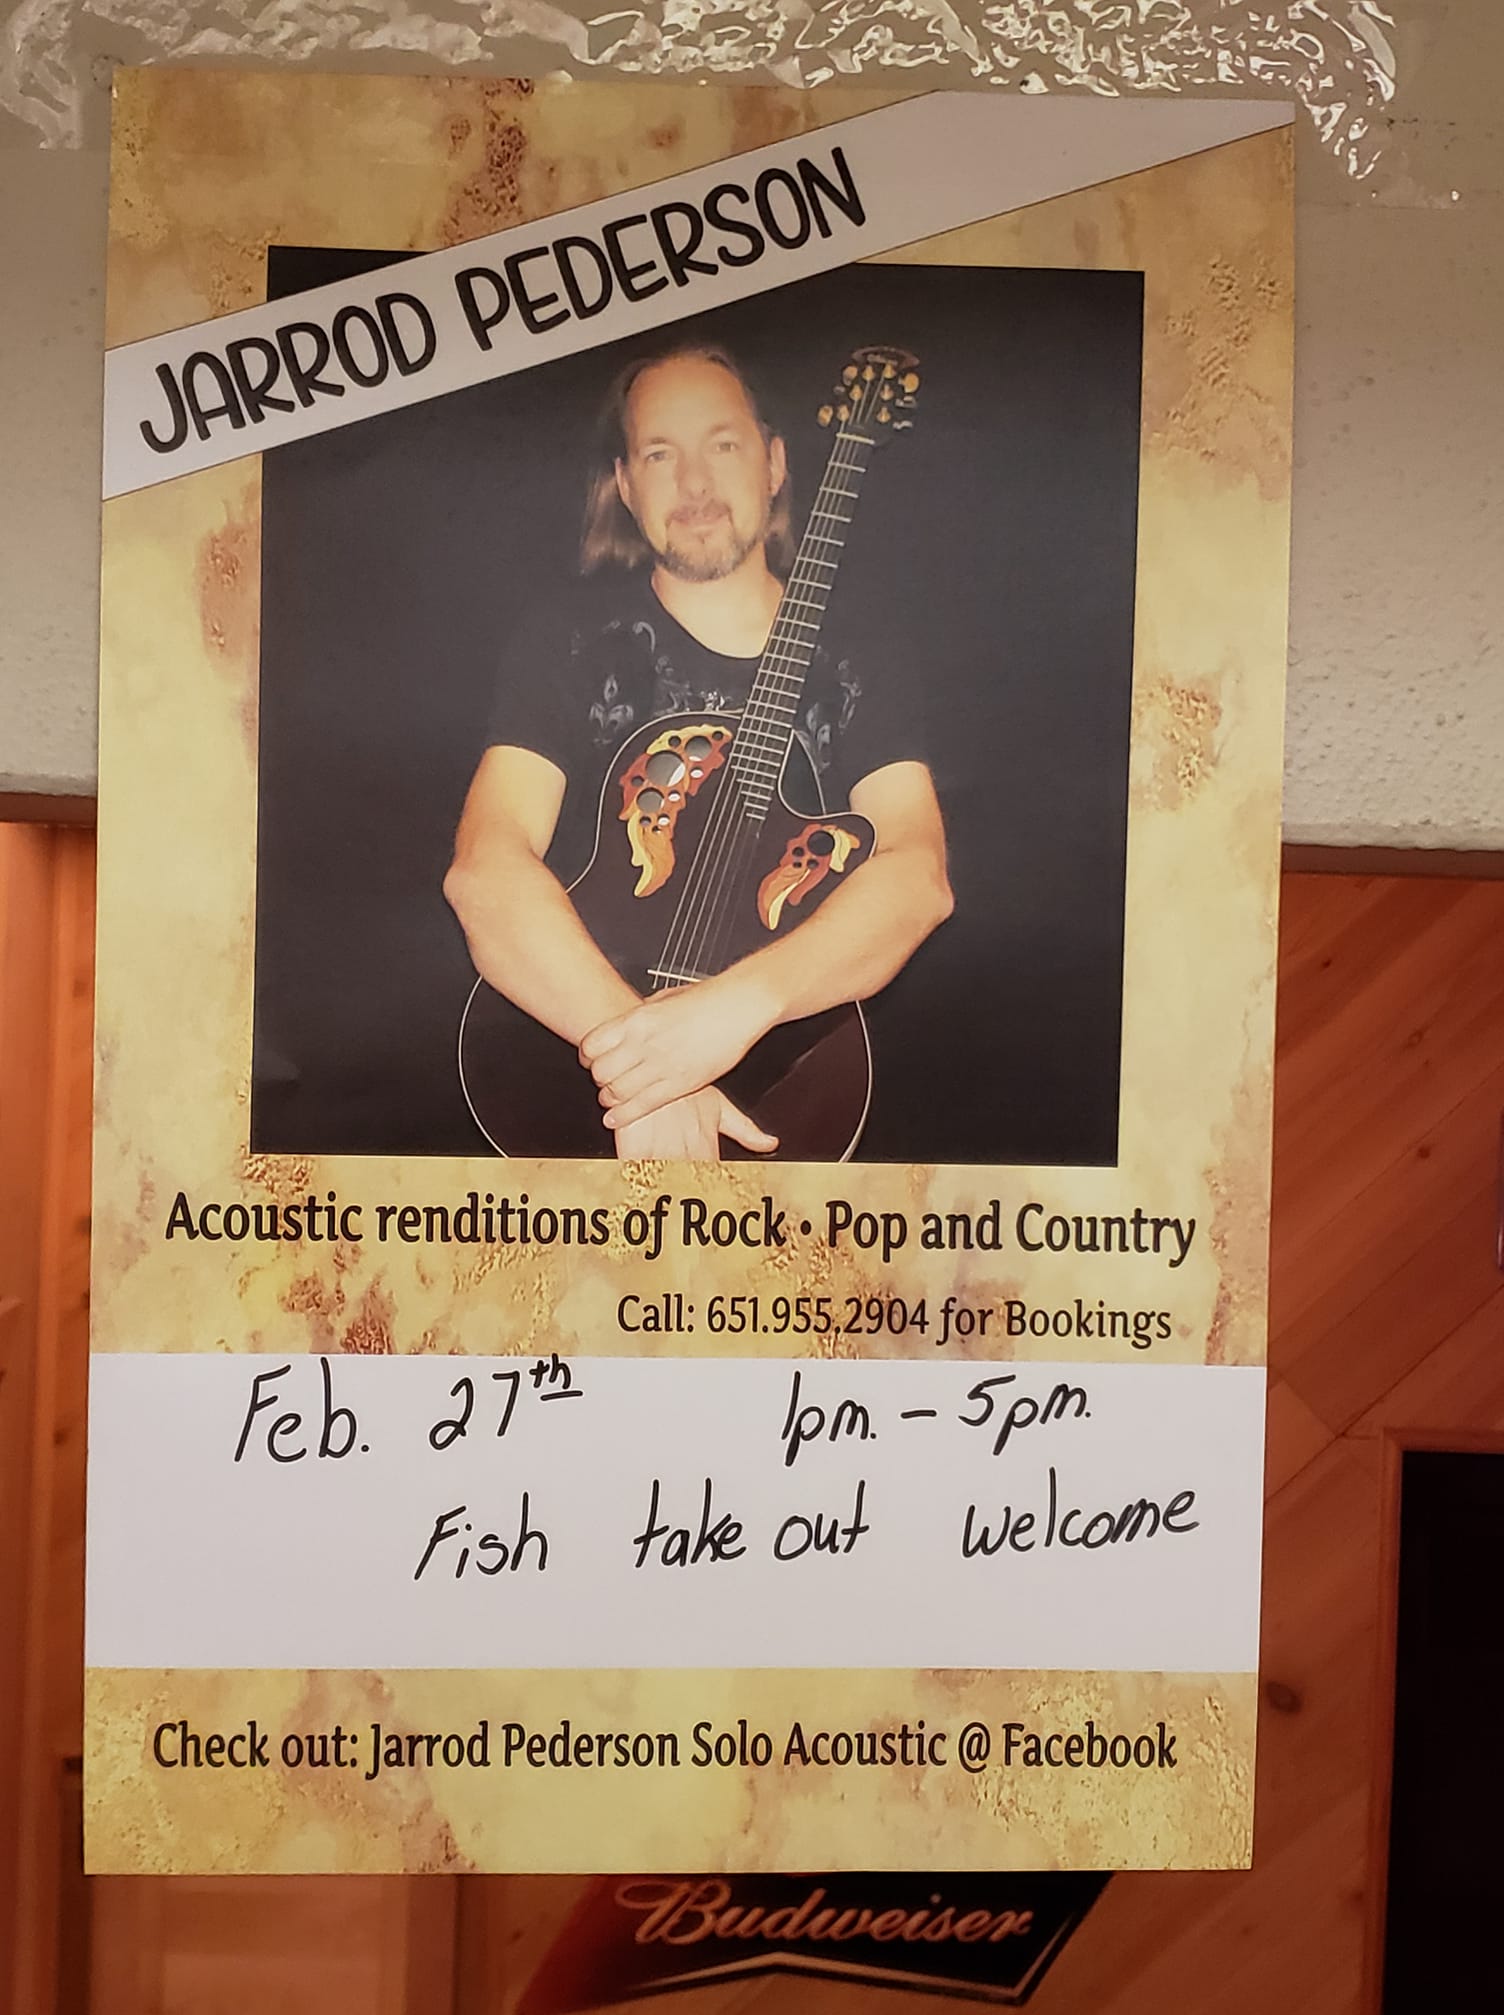 JARROD PEDERSON
Acoustic renditions of Rock • Pop and Country
Call: 651.955.2904 for Bookings
Feb. 27th 1pm. - 5pm.
Fish take out welcome
Check out: Jarrod Pederson Solo Acoustic @ Facebook
Budweiser